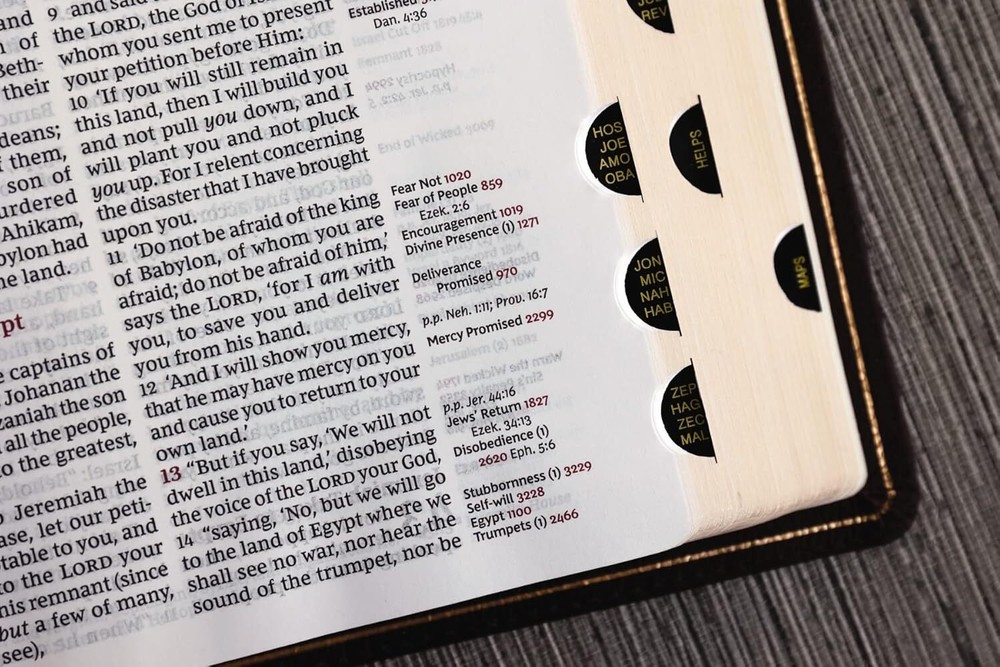 and
of
Beth-
their
deans;
f them,
son of
urdered
Ahikam,
bylon had
he land.
pt
e captains of
Johanan the
zaniah the son
all the people,
o the greatest,
Jeremiah the
ase, let our peti-
table to you, and
to the LORD your
his remnant (since
but a few of many,
see),
9 and said
the LORD, the God of
whom you sent me to present
your petition before Him:
10 ‘If you will still remain in
this land, then I will build you
and not pull you down, and I
will plant you and not pluck
you up. For I relent concerning
the disaster that I have brought
upon you.
11 ‘Do not be afraid of the king
of Babylon, of whom you are
afraid; do not be afraid of him,’
says the LORD, ‘for I am with
you, to save you and deliver
you from his hand.
12 ‘And I will show you mercy,
that he may have mercy on you
and cause you to return to your
own land.’
13 “But if you say, ‘We will not
dwell in this land,’ disobeying
the voice of the LORD your God,
14 “saying, ‘No, but we will go
to the land of Egypt where we
shall see no war, nor hear the
sound of the trumpet, nor be
Established
Dan. 4:36
Fear Not 1020
Fear of People 859
Ezek. 2:6
Encouragement 1019
Divine Presence (1) 1271
Deliverance
Promised 970
p.p. Neh. 1:11; Prov. 16:7
Mercy Promised 2299
p.p. Jer. 44:16
Jews’ Return 1827
Ezek. 34:13
Disobedience (1)
2620 Eph. 5:6
Stubbornness (1) 3229
Self-will 3228
Egypt 1100
Trumpets (1) 2466
REV
HOS
JOE
AMO
OBA
HELPS
JON
MIC
NAH
HAB
MAPS
ZEP
HAG
ZEC
MAL